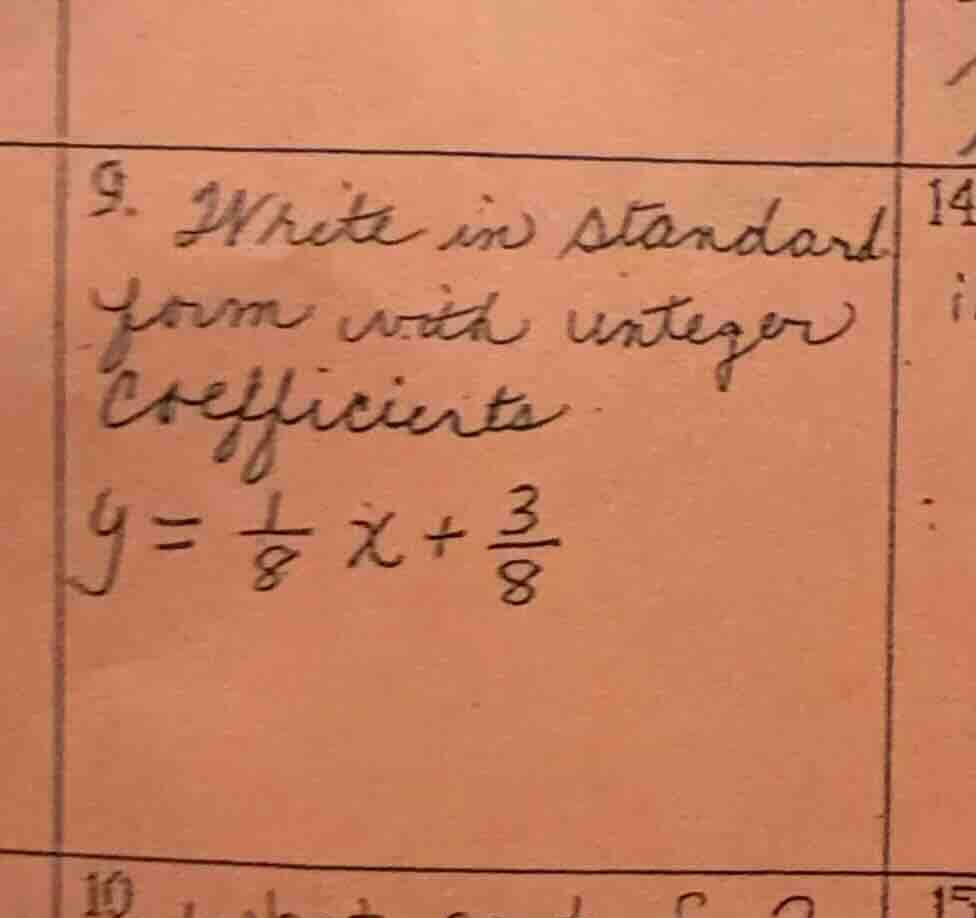 9. Write in standard
form with integer
Coefficients
y = 1/8 x + 3/8
14
i
10
15